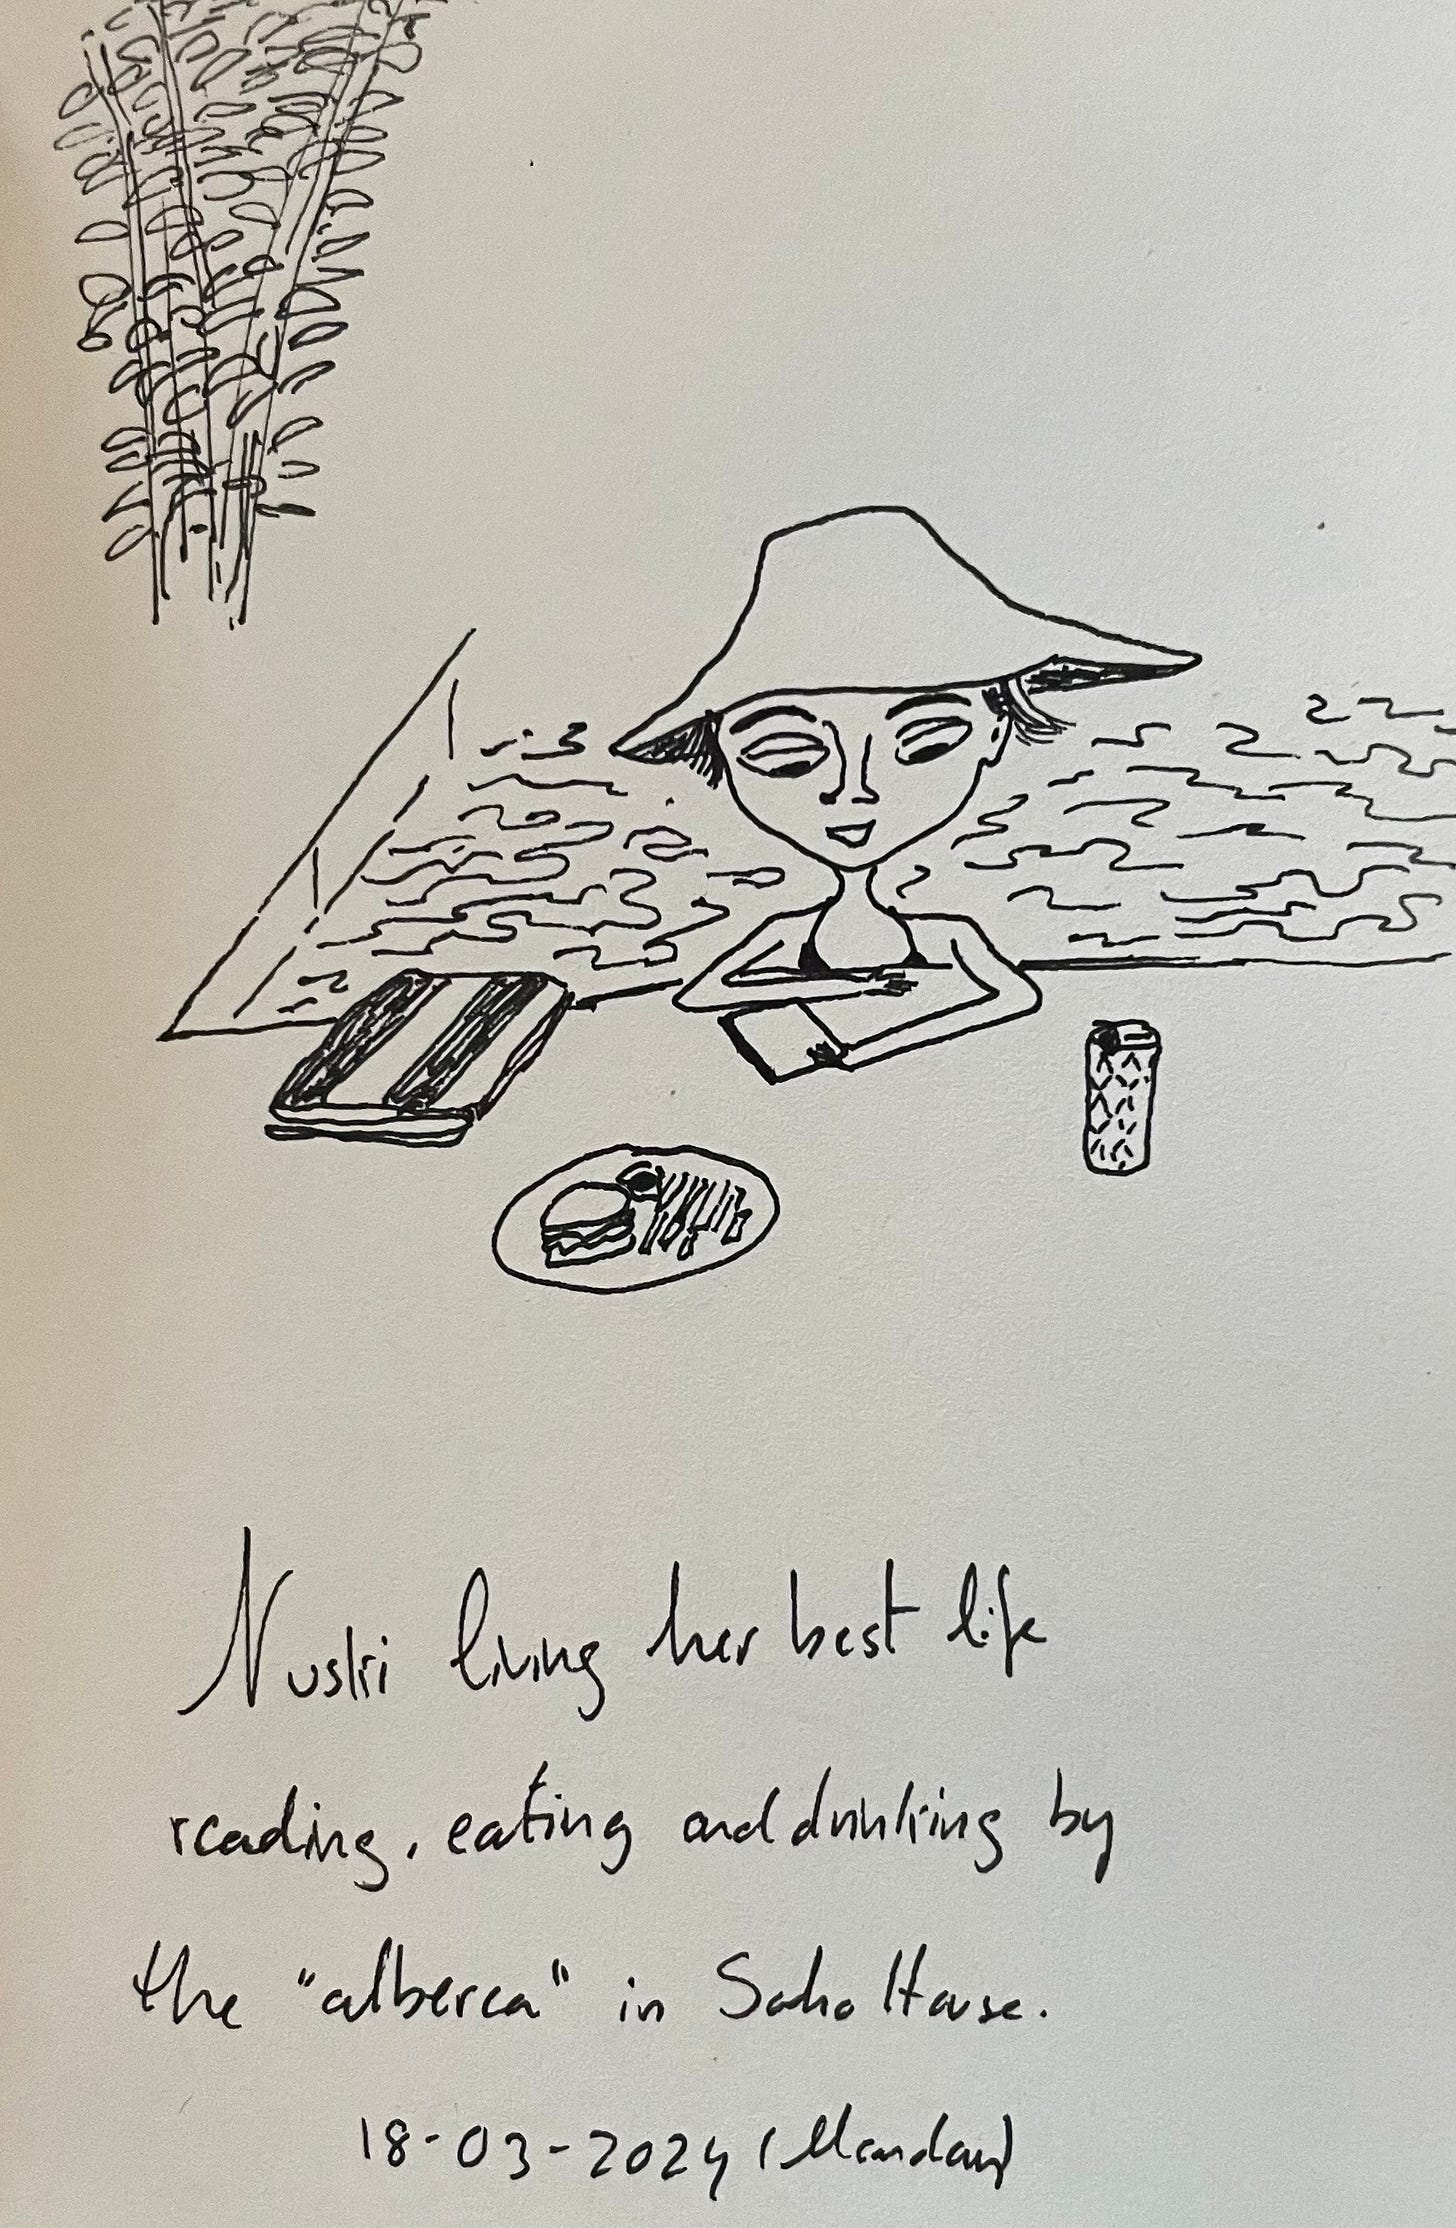 Nuski living her best life
reading, eating and drinking by
the "alberca" in Soho House.
18-03-2024 (Monday)